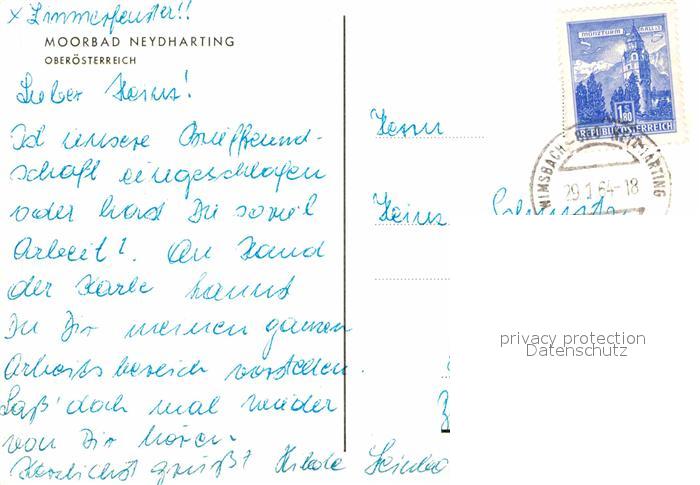 x Zimmerfenster!!
MOORBAD NEYDHARTING
OBERÖSTERREICH
Lieber Heinz!
Ist unsere Brieffreund-
schaft eingeschlafen
oder hast Du soviel
Arbeit?. An Hand
der Karte kannst
Du Dir meinen ganzen
Arbeitsbereich vorstellen.
Laß' doch mal wieder
von Dir hören.
Herzlichst grüßt Hilde
Herrn
Heinz
MÜNZTURM HALL I.T.
S 1.80
REPUBLIK ÖSTERREICH
WIMSBACH-NEYDHARTING
29.1.64-18
privacy protection
Datenschutz